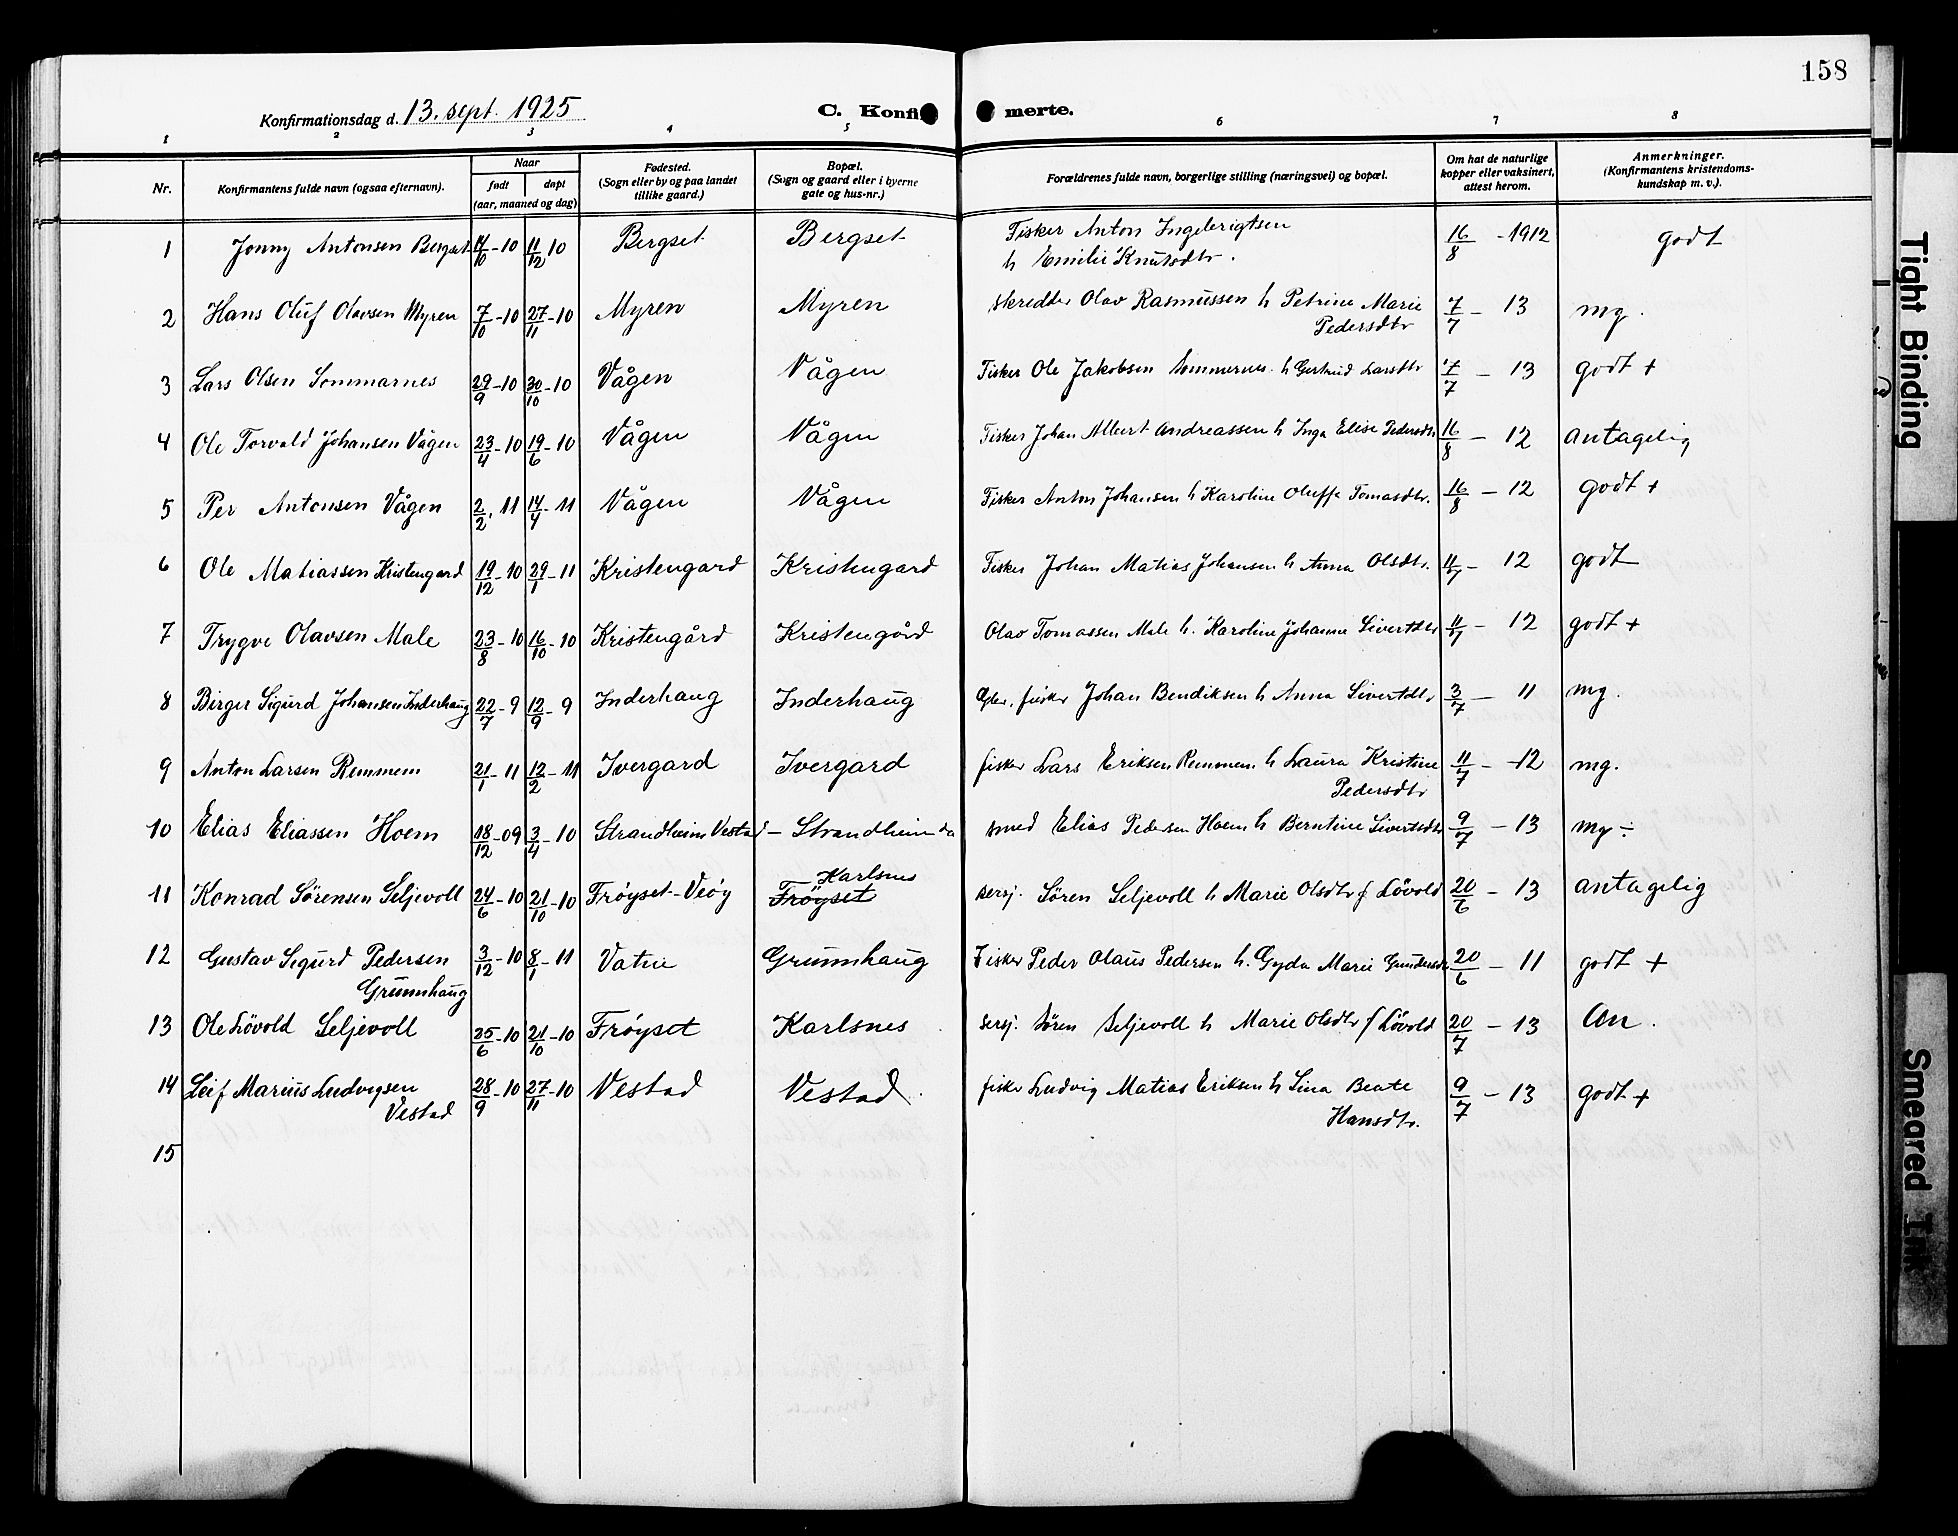 158
Konfirmationsdag d. 13. sept. 1925
C. Konfi merte.
1 2 3 4 5 6 7 8
Nr. Konfirmantens fulde navn (ogsaa efternavn). Naar født døpt (aar, maaned og dag) Fødested. (Sogn eller by og paa landet tillike gaard.) Bopæl. (Sogn og gaard eller i byerne gate og hus-nr.) Forældrenes fulde navn, borgerlige stilling (næringsvei) og bopæl. Om hat de naturlige kopper eller vaksinert, attest herom. Anmerkninger. (Konfirmantens kristendomskundskap m. v.).
1 Jonny Antonsen Bergset 14/10-10 11/12 10 Bergset Bergset Fisker Anton Ingebrigtsen 16/8 -1912 godt
h Emilie Knutsdtr.
2 Hans Oluf Olavsen Myren 7/10-10 27/11-10 Myren Myren skredder Olav Rasmussen h Petrine Marie 7/7 - 13 mg.
Pedersdtr
3 Lars Olsen Sommarnes 29/9-10 30/10-10 Vågen Vågen Fisker Ole Jakobsen Sommernes h Gertrud Larsdtr 7/7 - 13 godt +
4 Ole Torvald Johansen Vågen 23/4-10 19/6-10 Vågen Vågen Fisker Johan Albert Andreassen h Inga Elise Pedersdtr 16/8 - 12 antagelig
5 Per Antonsen Vågen 2/2, 11 14/4-11 Vågen Vågen Fisker Anton Johansen h Karoline Oluffa Tomasdtr. 16/8 - 12 godt +
6 Ole Matiassen Kristengard 19/12-10 29/1-11 Kristengard Kristengard Fisker Johan Matias Johansen h Anna Olsdtr. 11/7 - 12 godt
7 Trygve Olavsen Male 23/8-10 16/10-10 Kristengård Kristengård Olav Tomassen Male h. Karoline Johanne Sivertsdtr 11/7 - 12 godt +
8 Birger Sigurd Johansen Inderhaug 22/7-9 12/9-9 Inderhaug Inderhaug fisker Johan Bendiksen h Anna Sivertsdtr 3/7 - 11 mg.
9 Anton Larsen Remmem 21/1-11 12/2-11 Ivergard Ivergard fisker Lars Eriksen Remmem h Laura Kristine 11/7 - 12 mg.
Pedersdtr
10 Elias Eliassen Hoem 18/12-09 3/4-10 Strandheim Vestad - Strandheim da smed Elias Pedersen Hoem h Berntine Sivertsdtr 9/7 - 13 mg ÷
Karlsnes
11 Konrad Sørensen Seljevoll 24/6-10 21/10-10 Frøyset-Veøy Frøyset sersj. Søren Seljevoll h Marie Olsdtr f Løvold 20/6 - 13 antagelig
12 Gustav Sigurd Pedersen 3/12-10 8/1-11 Vatne Grunnhaug Fisker Peder Olaus Pedersen h. Gyda Marie Gundersdtr 20/6 - 11 godt +
Grunnhaug
13 Ole Løvold Seljevoll 25/6-10 21/10-10 Frøyset Karlsnes sersj. Søren Seljevoll h Marie Olsdtr f Løvold 20/7 - 13 an.
14 Leif Marius Ludvigsen 28/9-10 27/11-10 Vestad Vestad fisker Ludvig Matias Eriksen h Lina Beate 9/7 - 13 godt +
Vestad Hansdtr.
15
Tight Binding
Smeared Ink